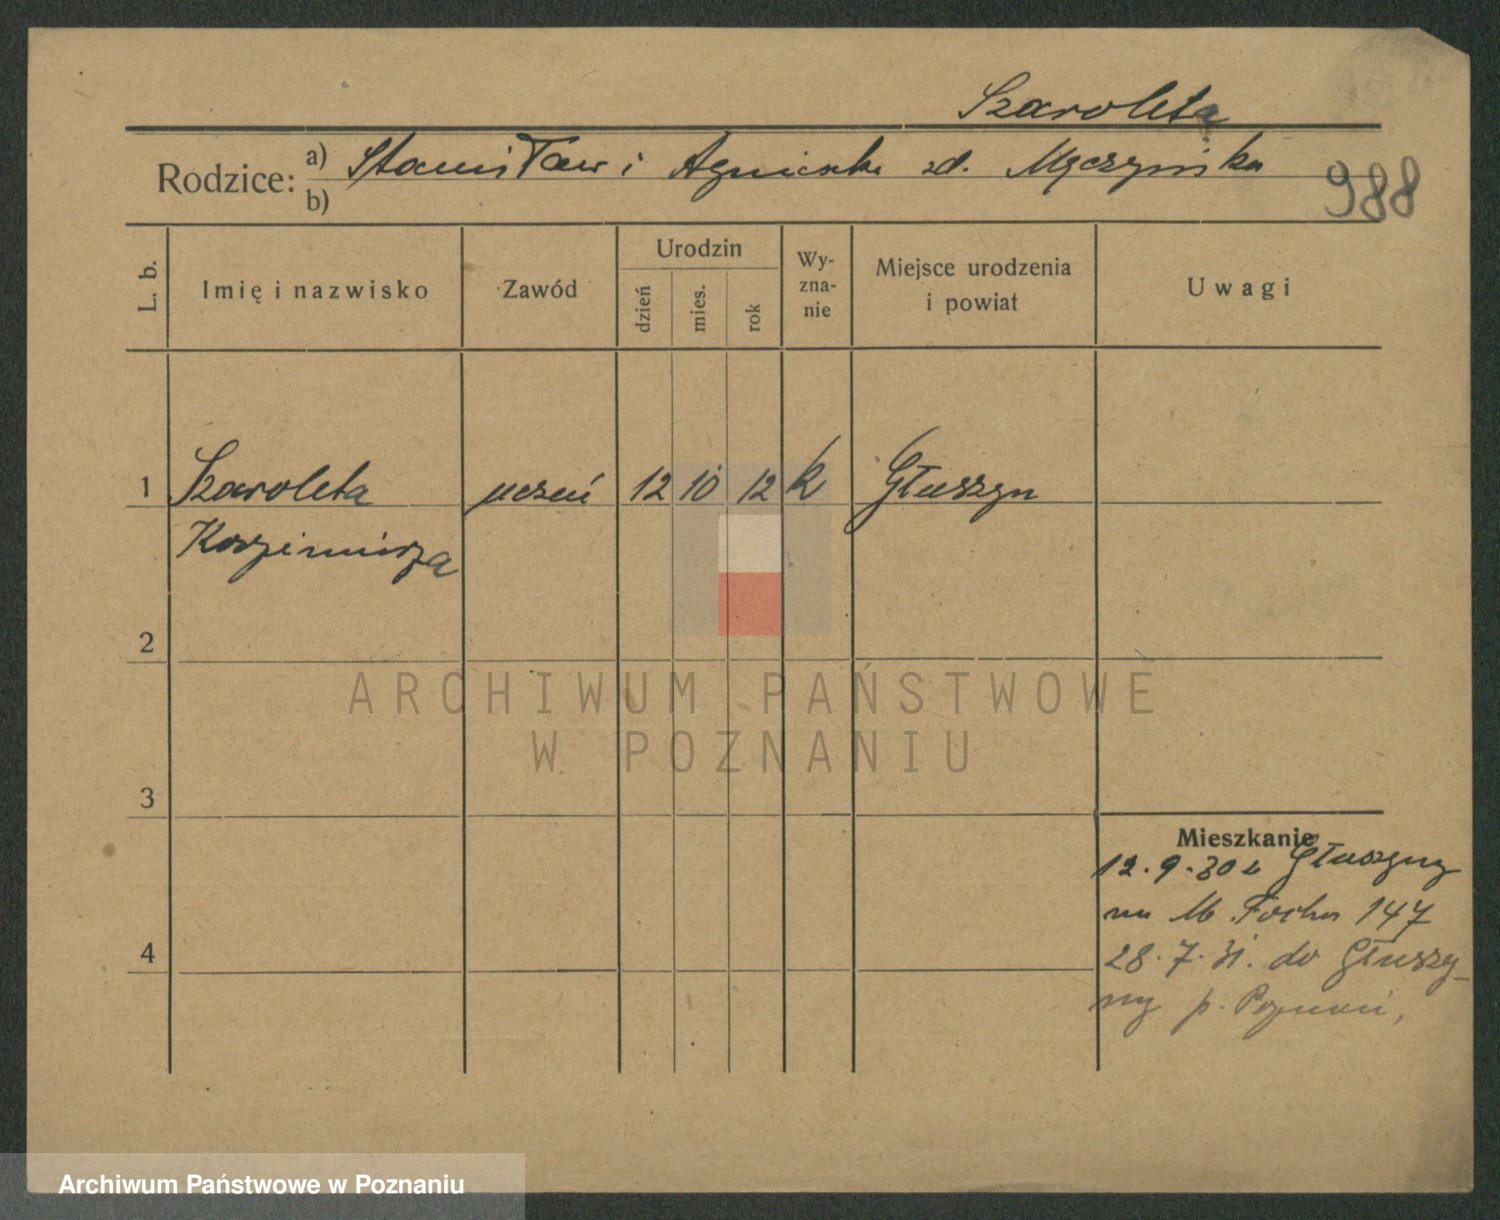 Szaroleta
Rodzice: a) Stanisław i Agnieszka zd. Męczyńska
b)
988
L. b.
Imię i nazwisko
Zawód
Urodzin
dzień
mies.
rok
Wy-
zna-
nie
Miejsce urodzenia
i powiat
Uwagi
1 Szaroleta uczeń 12 10 12 k Głuszyn
Kazimierza
2
ARCHIWUM PAŃSTWOWE
W POZNANIU
3
Mieszkanie
12.9.30 z Głuszyny
na M. Focha 147
4
28.7.31. do Głuszy-
ny p. Poznań,
Archiwum Państwowe w Poznaniu